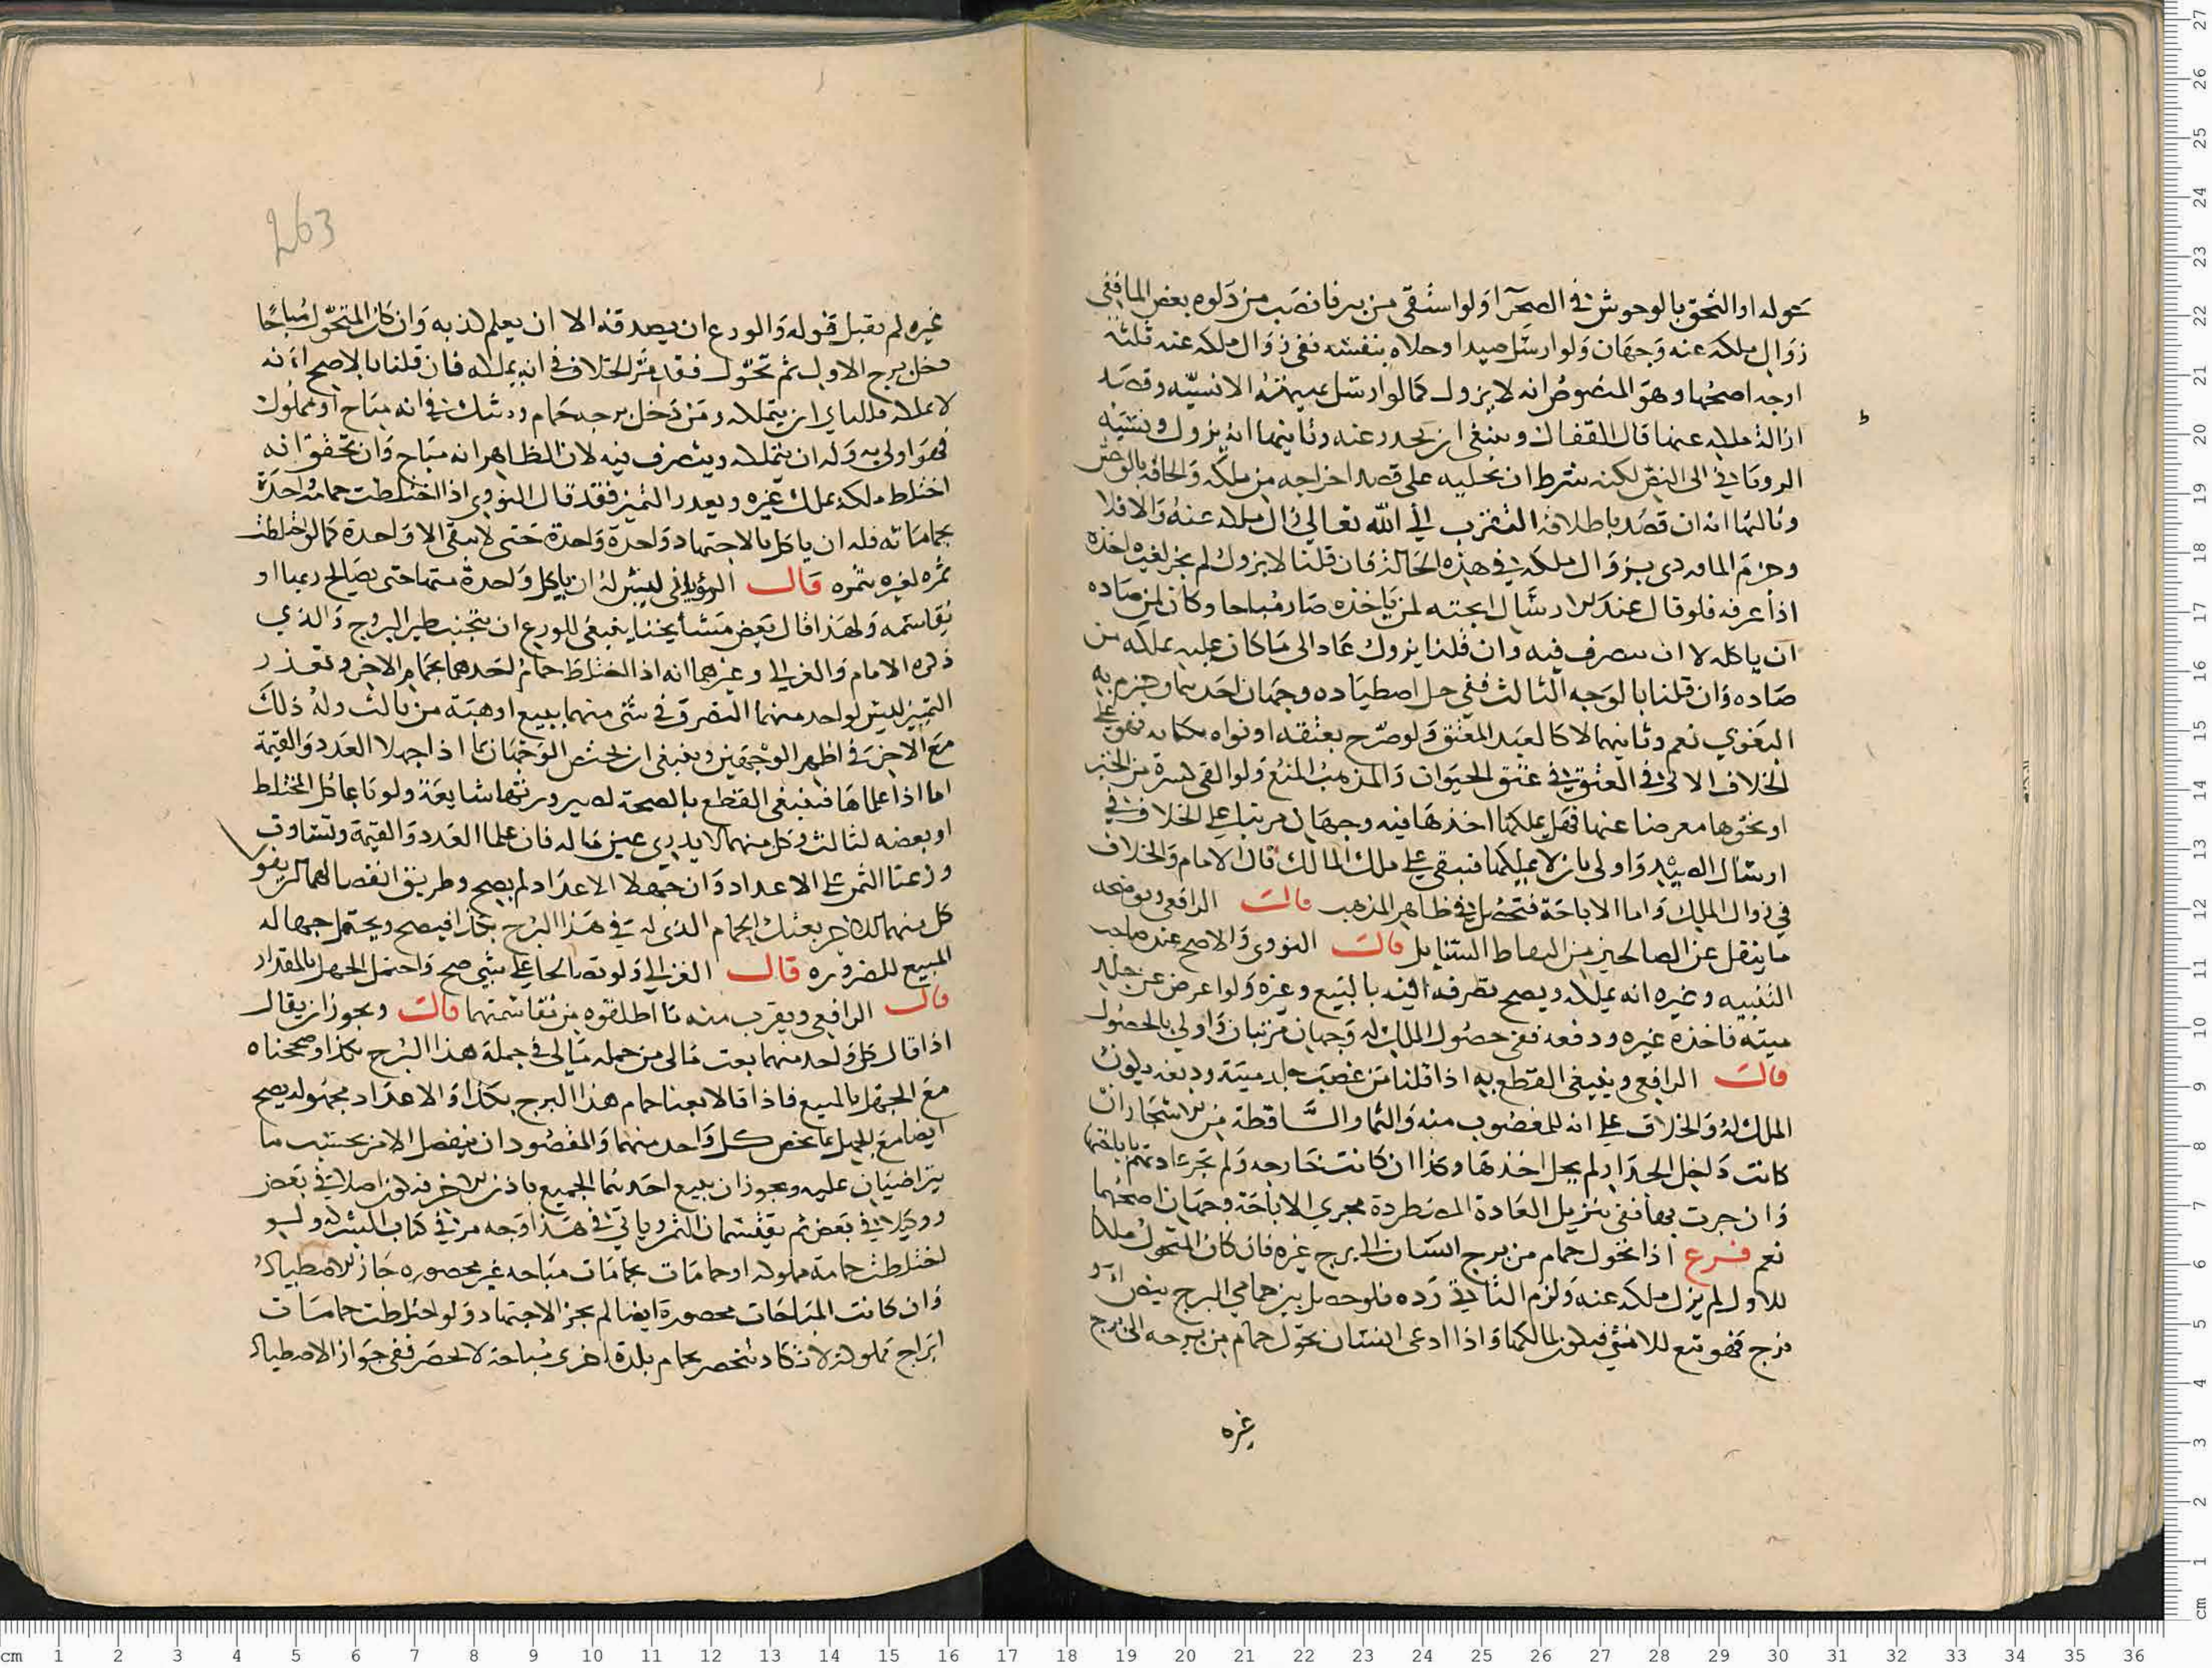 حوله او التحق بالوحوش في الصحرآ او لو استقى من بير فانصب من دلوه بعض الما ففي
زوال ملكه عنه وجهان ولو ارسل صيدا وخلاه بنفسه ففي زوال ملكه عنه ثلثة
اوجه اصحها وهو المنصوص انه لا يزول كما لو ارسل بهيمته الانسيّه وقصد
ازالة ملكه عنها قال القفال وينبغي ان يحدد عنه وثانيها انه يزول ونسبه
الروياني الى النص لكنه شرط ان تخليه على قصد اخراجه من ملكه والحاقه بالوحش
وثالثها انه ان قصد باطلاقه التقرب الى الله تعالى زال ملكه عنه والا فلا
وجزم الماوردي بزوال ملكه في هذه الحالة فان قلنا لا يزول لم يجز لغيره اخذه
اذا عرفه فلو قال عند الارسال ابحته لمن ياخذه صار مباحا وكان لمن صاده
ان ياكله لا ان يتصرف فيه وان قلنا يزول عاد الى ما كان عليه يملكه من
صاده وان قلنا بالوجه الثالث ففي حل اصطياده وجهان احدهما وجزم به
البغوي نعم وثانيهما لا كالعبد المعتق ولو صرّح بعتقه او نواه فهو على
الخلاف الاتي في العتق في عتق الحيوان والمذهب المنع ولو القى كسرة من الخبز
او نحوها معرضا عنها فهل يملكها اخذها فيه وجهان مرتبان على الخلاف في
ارسال الصيد واولى بان لا يملكها فتبقى على ملك المالك قال الامام والخلاف
في زوال الملك واما الاباحة فتحصل في ظاهر المذهب قالت الرافعي ويوضحه
ما ينقل عن الصالحين من التقاط السنابل قالت النووي والاصح عند صاحب
التنبيه وغيره انه يملكه ويصح تصرفه فيه بالبيع وغيره ولو اعرض عن جلد
ميتة فاخذه غيره ودفعه ففي حصول الملك له وجهان مرتبان واولى بالحصول
قالت الرافعي وينبغي القطع به اذا قلنا من غصب جلد ميتة ودبغه يكون
الملك له والخلاف على انه للمغصوب منه والثمار الساقطة من الاشجار ان
كانت داخل الجدار لم يحل اخذها وكذا ان كانت خارجه ولم تجر عادتهم باباحتها
وان جرت بها ففي تنزيل العادة المطردة مجرى الاباحة وجهان اصحهما
نعم فرع اذا تحول حمام من برج انسان الى برج غيره فان كان المتحول ملكا
للاول لم يزل ملكه عنه ولزم الثاني رده فلو حصل بين حمامي البرج بيض او
فرخ فهو تبع للانثى فيكون لمالكها واذا ادعى انسان تحول حمام من برجه الى برج
غيره
263
غيره لم يقبل قوله والورع ان يصدقه الا ان يعلم كذبه وان كان المتحول مباحا
دخل برج الاول ثم تحول فقد مر الخلاف في انه يملكه فان قلنا بالاصح انه
لا يملكه فللثاني ان يتملكه ومن دخل برجه حمام وشك في انه مباح او مملوك
فهو اولى به وله ان يتملكه ويتصرف فيه لان الظاهر انه مباح وان تحقق انه
اختلط ملكه بملك غيره ويعدر التميز فقد قال البغوي اذا اختلطت حمامة واحدة
بحماماته فله ان ياكل بالاجتهاد واحدة واحدة حتى لا يبقى الا واحدة كما لو اختلطت
ثمره لغيره بثمره قالت الروياني ليس له ان ياكل واحدة منها حتى يصالح ربها او
يقاسمه ولهذا قال بعض مشايخنا ينبغي للورع ان يتجنب طير البروج والذي
ذكره الامام والغزالي وغيرهما انه اذا اختلط حمام احدهما بحمام الاخر وتعذر
التميز ليس لواحد منهما التصرف في شي منها ببيع او هبة من ثالث وله ذلك
مع الاخر في اظهر الوجهين وينبغي ان يختص الوجهان بما اذا جهلا العدد والقيمة
اما اذا علماها فينبغي القطع بالصحة لصيرورتها شايعة ولو باعا كل المختلط
او بعضه لثالث وكل منهما لا يدري عين ماله فان علما العدد والقيمة وتساوت
وزعنا الثمن على الاعداد وان جهلا الاعداد لم يصح وطريق انفصالهما ان يقول
كل منهما للاخر بعتك الحمام الذي لي في هذا البرج بكذا فيصح ويحتمل جهالة
المبيع للضروره قالت الغزالي ولو تصالحا على شي صح واحتمل الجهل بالمقدار
قالت الرافعي ويقرب منه ما اطلقوه من مقاسمتهما قالت ويجوز ان يقال
اذا قال كل واحد منهما بعت مالي من جملة مالي في جملة هذا البرج بكذا وصححناه
مع الجهل بالمبيع فاذا قالا بعنا حمام هذا البرج بكذا والاعداد مجهوله يصح
ايضا مع الجهل بما يخص كل واحد منهما والمقصود ان ينفصل الامر بحسب ما
يتراضيان عليه ويجوز ان يبيع احدهما الجميع باذن الاخر فيكون اصلا في بعض
ووكيلا في بعض ثم يقتسمان الثمن وياتي في هذا وجه مر في كتاب الشركه ولو
اختلطت حمامة مملوكه او حمامات بحمامات مباحه غير محصوره جاز الاصطياد
وان كانت المباحات محصورة ايضا لم يجز الاجتهاد ولو اختلطت حمامات
ابراج مملوكة لا تكاد تنحصر بحمام بلدة اخرى مباحة لا تحصر ففي جواز الاصطياد